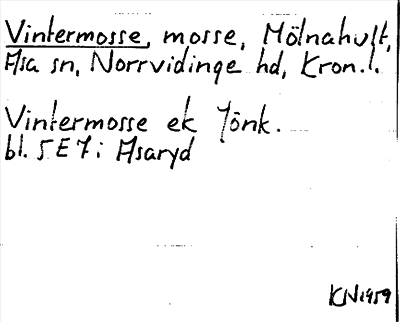 Vintermosse, mosse, Mölnahult,
Asa sn, Norrvidinge hd, Kron.l.
Vintermosse ek Jönk.
bl. 5E7i Asaryd
KN1959